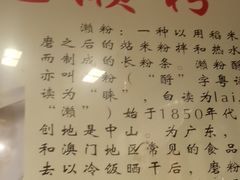 濑粉
濑粉：一种以用稻米
磨之后的粘米粉拌和热水
而制成的长粉条。濑粉
亦叫 粉（"酹"字粤
读为"睐"，白读为lai
"濑"）始于1850年代
创地是中山。为广东，
和澳门地区常见的食品
去以冷饭晒干后，磨粉